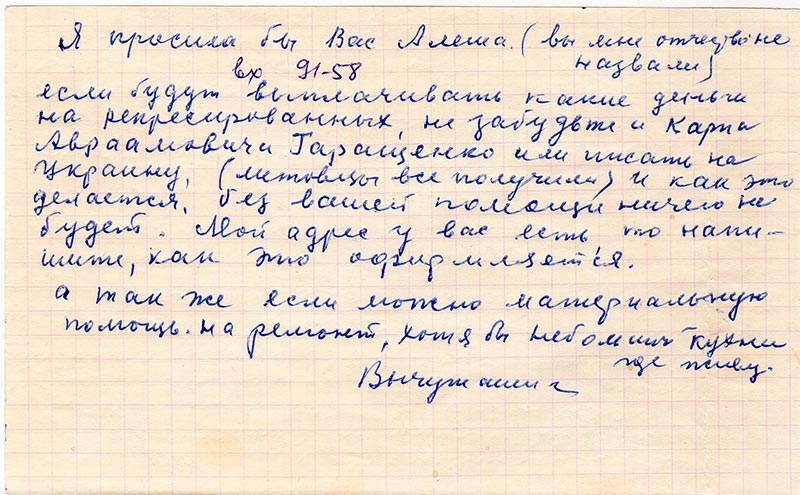 Я просила бы Вас Алеша. (вы мни отчество не
назвали)
вх 91-58
если будут выплачивать какие деньги
на репресированных, не забудьте и Карпа
Авраамовичи Гаращенко или писати на
Украину, (литовцы все получили) и как это
делается, без вашей помощи ничего не
будет. Мой адрес у вас есть то напи-
шите, как это офирмляется.
а так же если можно материальную
помощь. на ремонт, хотя бы кухни
где живу.